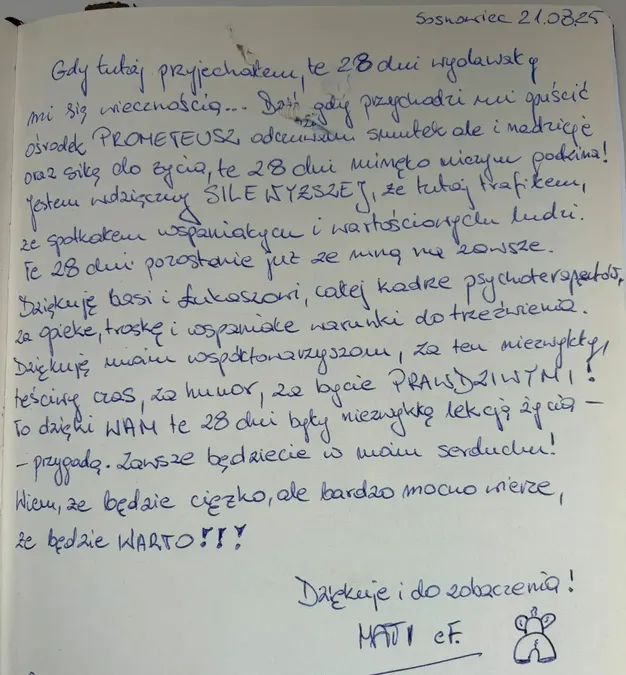 Sosnowiec 21.08.25
Gdy tutaj przyjechałem, te 28 dni wydawały
mi się wiecznością... Dziś gdy przychodzi mi opuścić
ośrodek PROMETEUSZ odczuwam smutek ale i nadzieję
oraz siłę do życia, te 28 dni minęło niczym godzina!
Jestem wdzięczny SILE WYŻSZEJ, że tutaj trafiłem,
że spotkałem wspaniałych i wartościowych ludzi.
Te 28 dni pozostanie już ze mną na zawsze.
Dziękuję Basi i Łukaszowi, całej kadrze psychoterapeutów,
za opiekę, troskę i wspaniałe warunki do trzeźwienia.
Dziękuję moim współtowarzyszom, za ten niezwykły,
treściwy czas, za humor, za bycie PRAWDZIWYMI!
To dzięki WAM te 28 dni były niezwykłą lekcją życia –
– przygodą. Zawsze będziecie w moim serduchu!
Wiem, że będzie ciężko, ale bardzo mocno wierzę,
że będzie WARTO!!!
Dziękuje i do zobaczenia!
MATI eF.